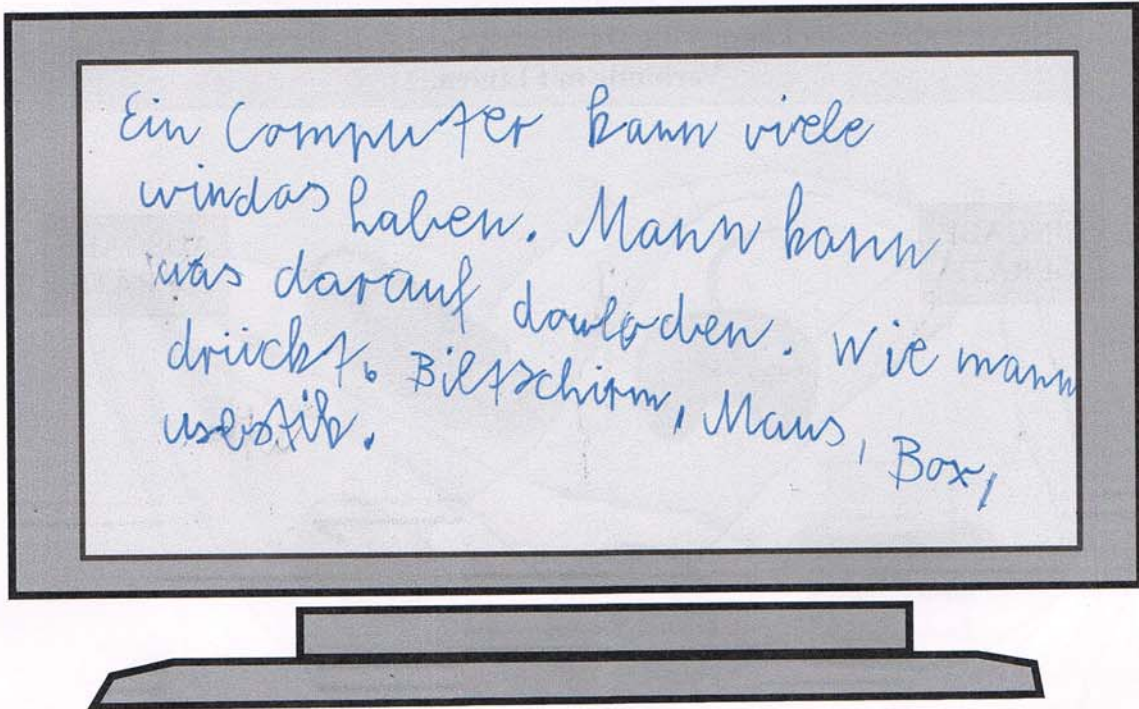 Ein Computer kann viele
windas haben. Mann kann
was darauf dowloden. Wie mann
drückt. Biltschirm, Maus, Box,
usbstik.